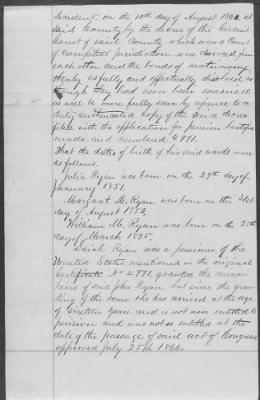 decedent on the 10th day of August 1860, at
said County by the decree of the Circuit
Court of said County which was a Court
of competent jurisdiction were divorced from
each other and the bonds of matrimony
thereby as fully and effectually dissolved as
though they had never been married
as will be more fully seen by reference to a
duly authenticated copy of the said decree
filed with the application for pension
made and numbered 4771.
That the dates of birth of his said wards were
as follows.
Julia Ryan was born on the 29th day of
January 1851.
Margaret M. Ryan was born on the 21st
day of August 1852,
William M. Ryan was born on the 25th
day of March 1855,
Sarah Ryan was a pensioner of the
United States mentioned in the original
Certificate No 4771, granted the minor
heirs of said John Ryan, but since the gran-
ting of the same she has arrived at the age
of Sixteen years and is not now entitled to
pension and was not so entitled at the
date of the passage of said act of Congress
approved July 25th 1866.